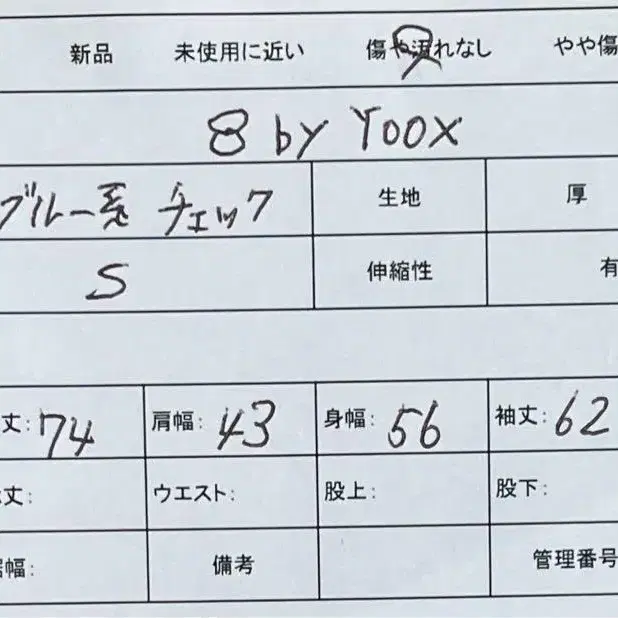 新品 未使用に近い 傷や汚れなし やや傷
8 by YOOX
ブルー系 チェック 生地 厚
S 伸縮性 有
丈: 74 肩幅: 43 身幅: 56 袖丈: 62
丈: ウエスト: 股上: 股下:
幅: 備考 管理番号